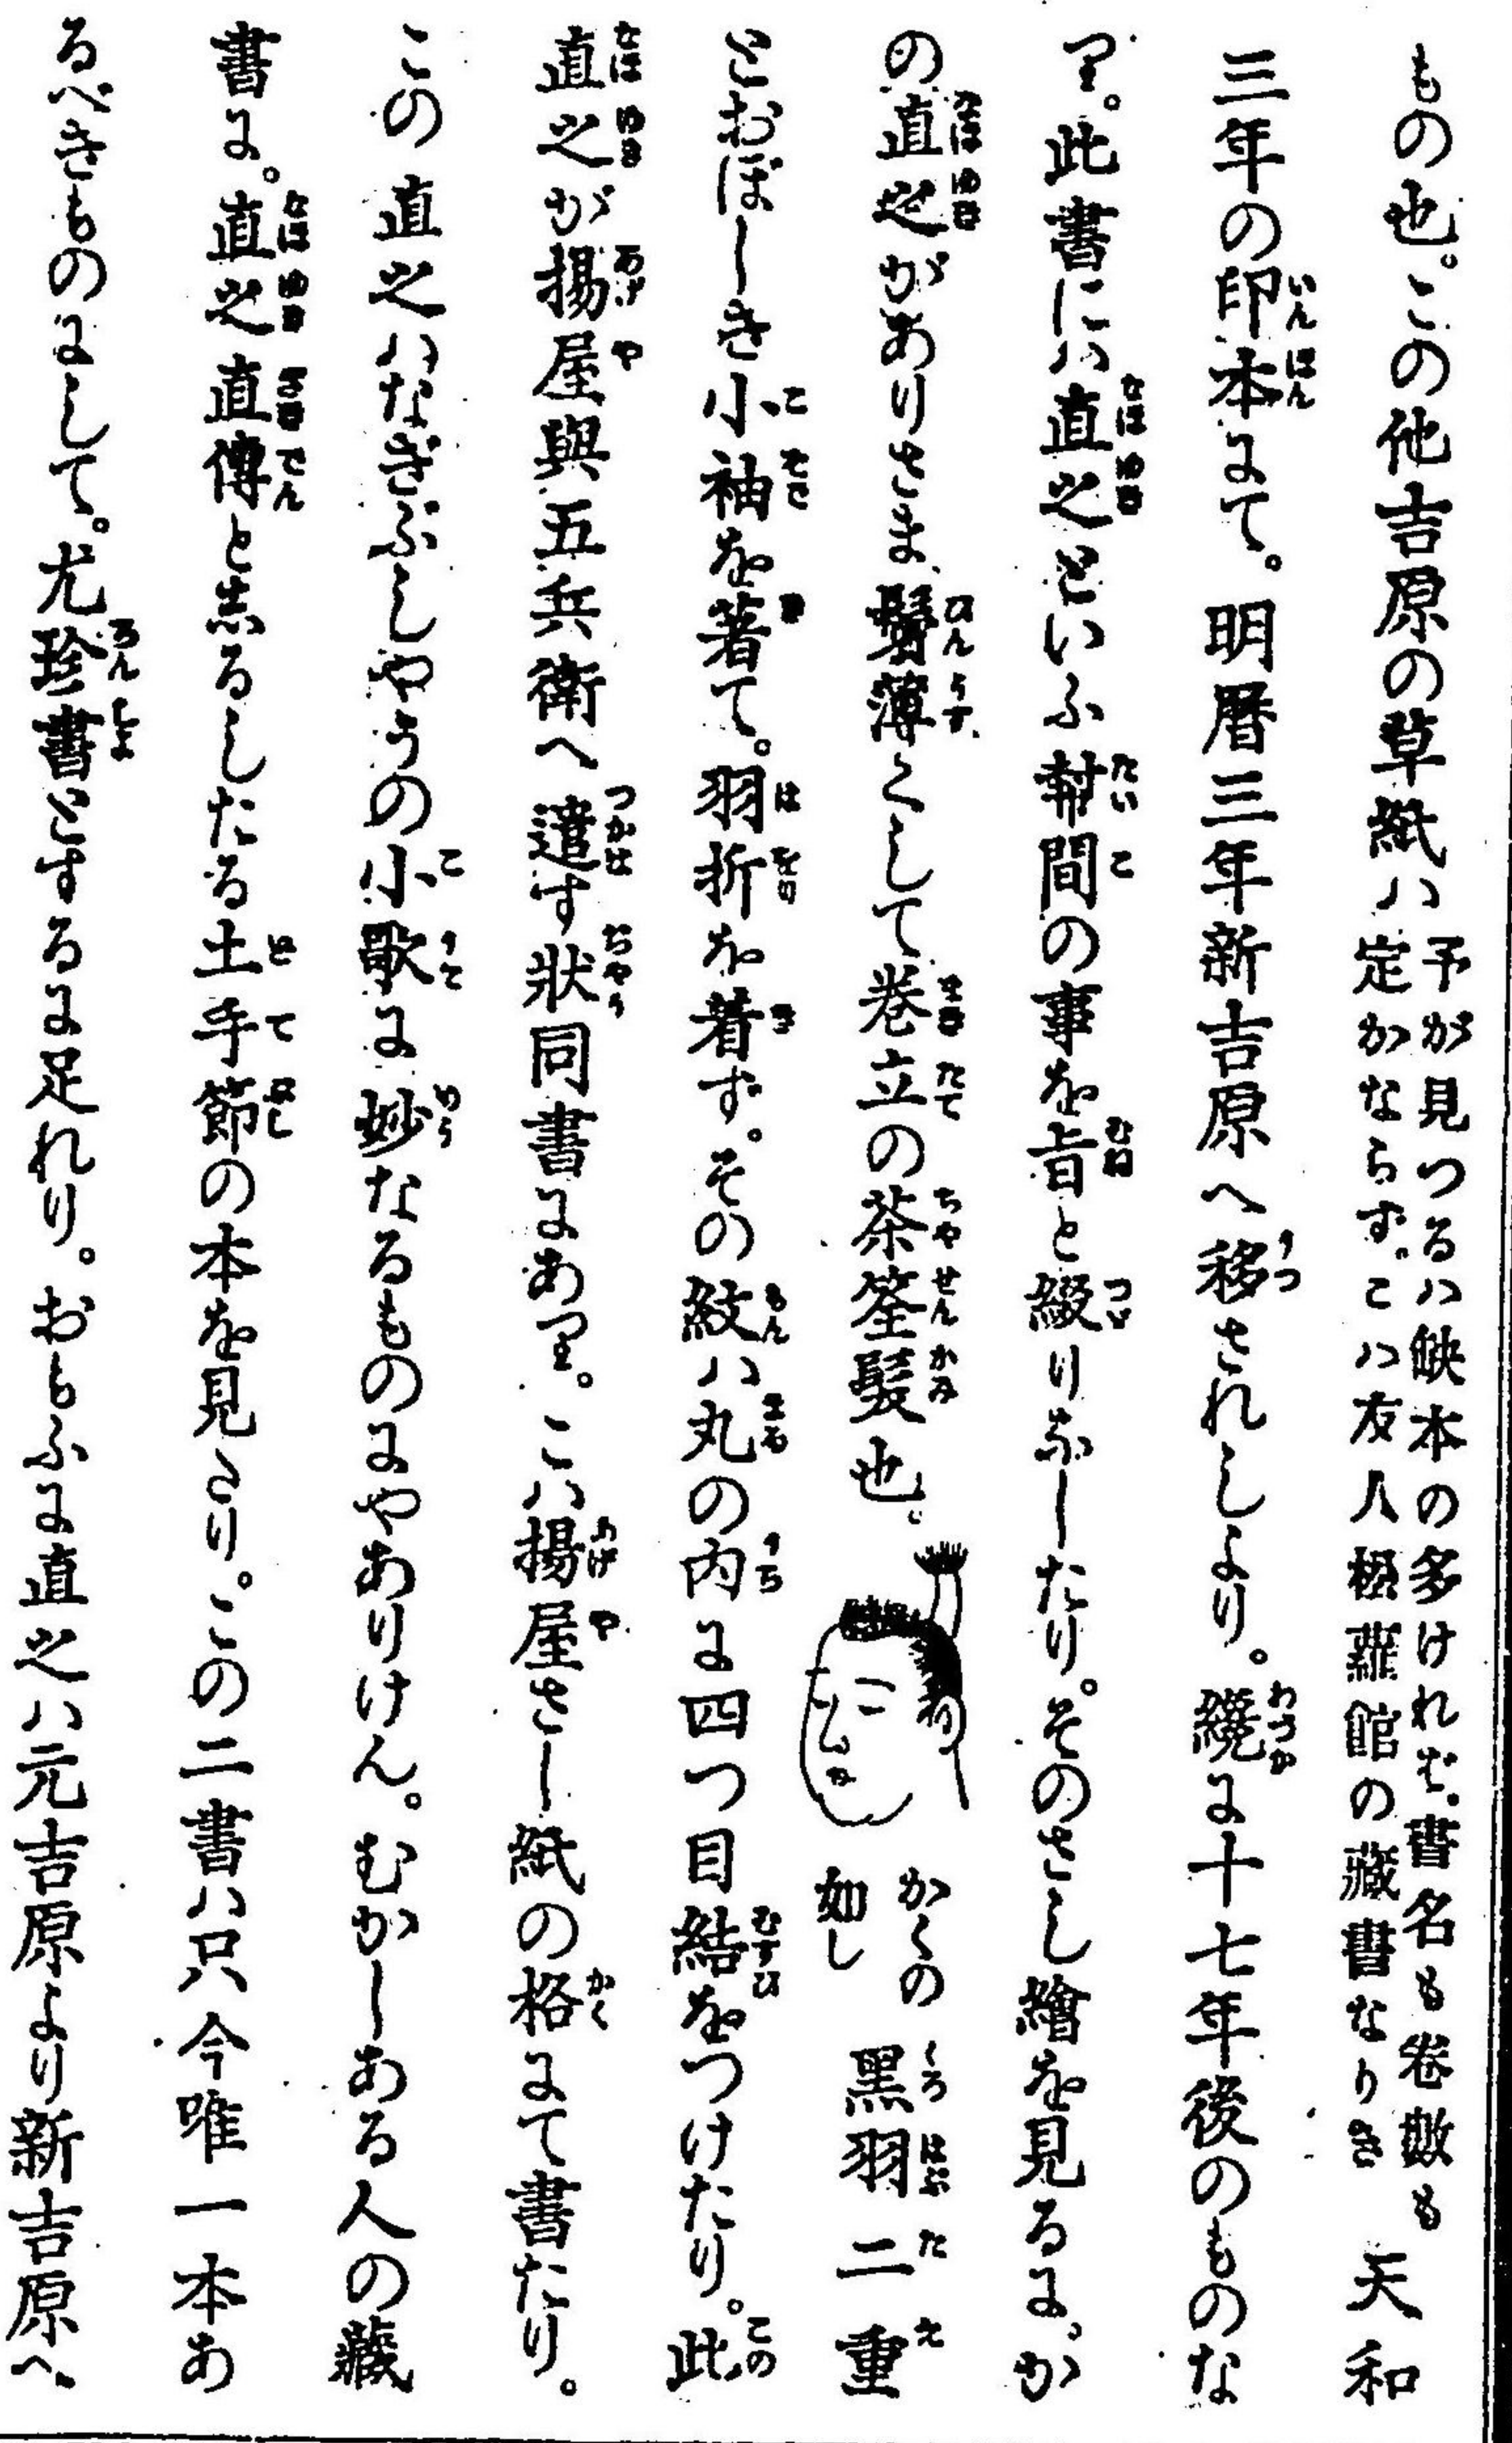 もの也。この他吉原の草紙ハ
予が見つるハ缺本の多けれど。書名も卷數も
定かならず。こハ友人榲蘿館の藏書なりき
天和
三年の印本にて。明暦三年新吉原へ移されしより。纔に十七年後のものな
り。此書にハ直之といふ幇間の事を旨と綴りなしたり。そのさし繪を見るに。か
の直之がありさま鬢薄くして卷立の茶筌髮也。
かくの
如し
黒羽二重
とおぼしき小袖を著て。羽折を着ず。その紋ハ丸の内に四つ目結をつけたり。此
直之が揚屋與五兵衞へ遣す狀同書にあり。こハ揚屋さし紙の格にて書たり。
この直之ハなぎぶしやうの小歌に妙なるものにやありけん。むかしある人の藏
書に。直之直傳と志るしたる土手節の本を見たり。この二書ハ只今唯一本あ
るべきものにして。尤珍書とするに足れり。おもふに直之ハ元吉原より新吉原へ